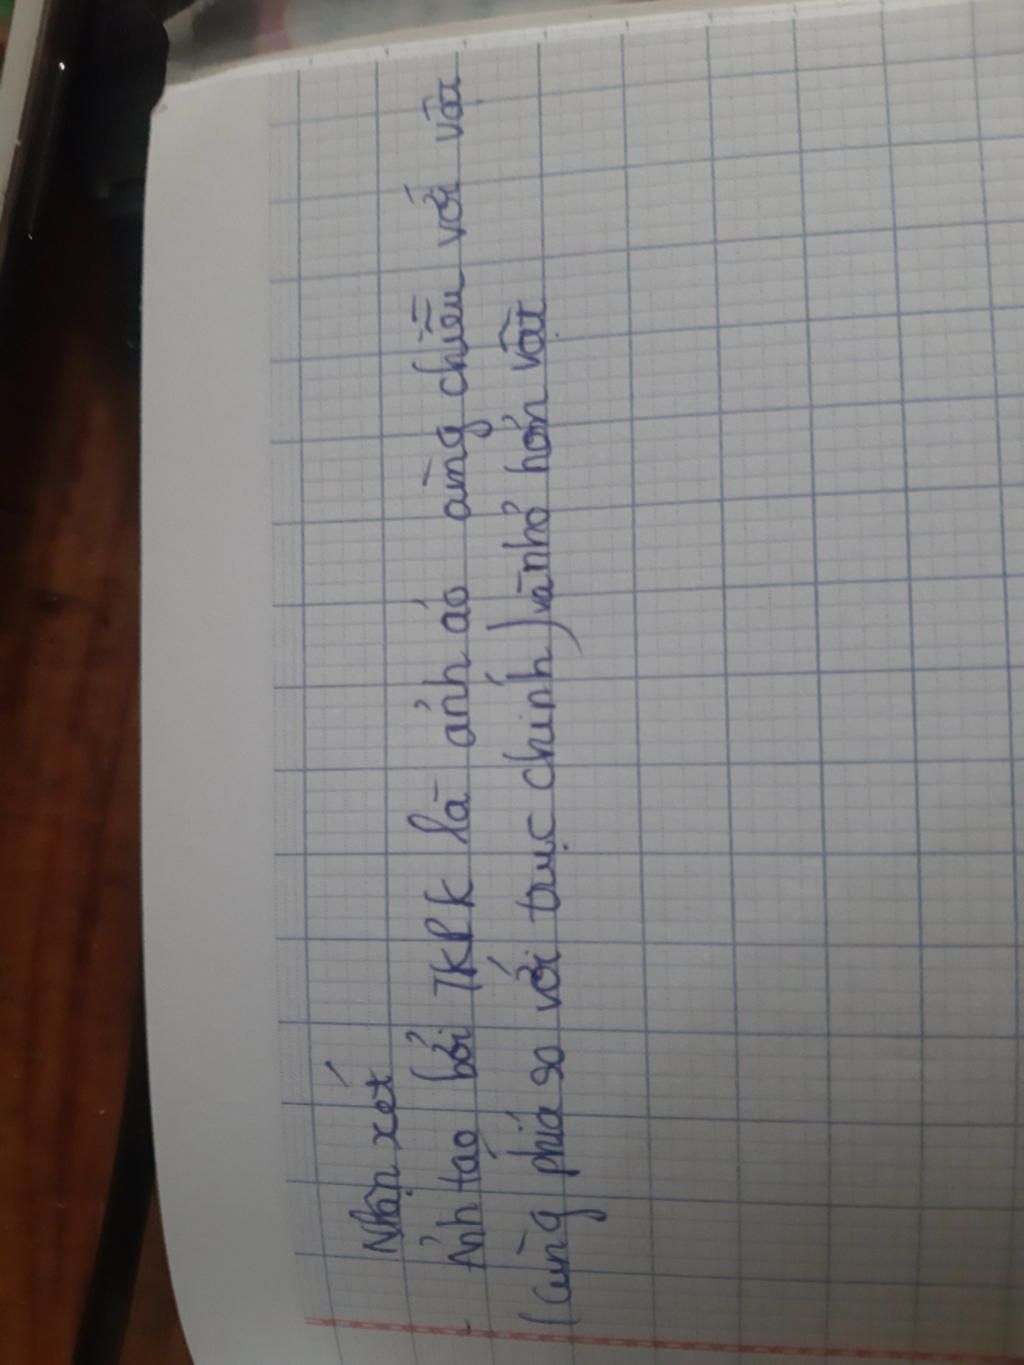 Nhận xét
- Ảnh tạo bởi TKPK là ảnh ảo cùng chiều với vật
(cùng phía so với trục chính) và nhỏ hơn vật